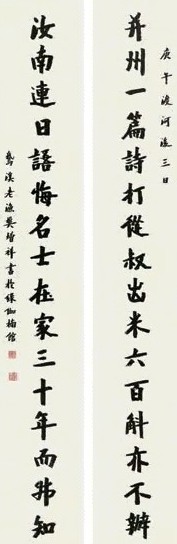 庚午渡河後三日
并州一篇詩打從叔出米六百斛亦不辦
汝南連日語悔名士在家三十年而弗知
溪老漁樊增祥書於綠伽楠館